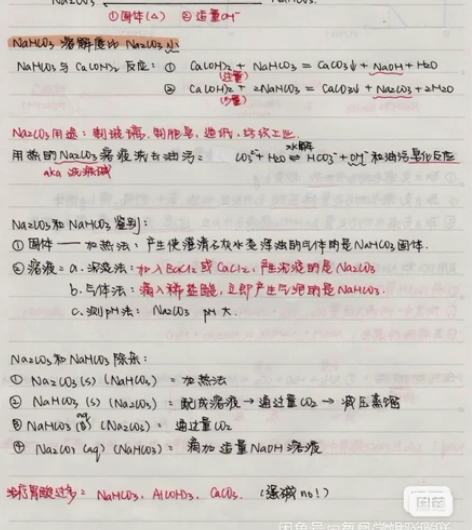 ①固体(△) ②适量OH⁻
NaHCO₃ 溶解度比 Na₂CO₃ 小
NaHCO₃与 Ca(OH)₂ 反应: ① Ca(OH)₂ + NaHCO₃ = CaCO₃↓ + NaOH + H₂O
(过量)
② Ca(OH)₂ + 2NaHCO₃ = CaCO₃↓ + Na₂CO₃ + 2H₂O
(少量)
Na₂CO₃用途: 制玻璃, 制肥皂, 造纸, 纺织工业.
用热的Na₂CO₃溶液洗去油污: CO₃²⁻ + H₂O ⇌ HCO₃⁻ + OH⁻ 和油污皂化反应
水解
aka 洗涤碱
Na₂CO₃和 NaHCO₃ 鉴别:
① 固体 —— 加热法: 产生使澄清石灰水变浑浊的气体的是 NaHCO₃ 固体.
② 溶液: a. 沉淀法: 加入BaCl₂ 或 CaCl₂, 产生沉淀的是 Na₂CO₃
b. 气体法: 滴入稀盐酸, 立即产生气泡的是 NaHCO₃.
c. 测pH法: Na₂CO₃ pH 大.
Na₂CO₃和 NaHCO₃ 除杂:
① Na₂CO₃(s) (NaHCO₃) = 加热法
② NaHCO₃(s) (Na₂CO₃) = 配成溶液 → 通过量CO₂ → 减压蒸馏
③ NaHCO₃(aq) (Na₂CO₃) = 通过量CO₂
④ Na₂CO₃(aq) (NaHCO₃) = 滴加 适量 NaOH 溶液
治疗胃酸过多: NaHCO₃, Al(OH)₃, CaCO₃. (强碱 no!)